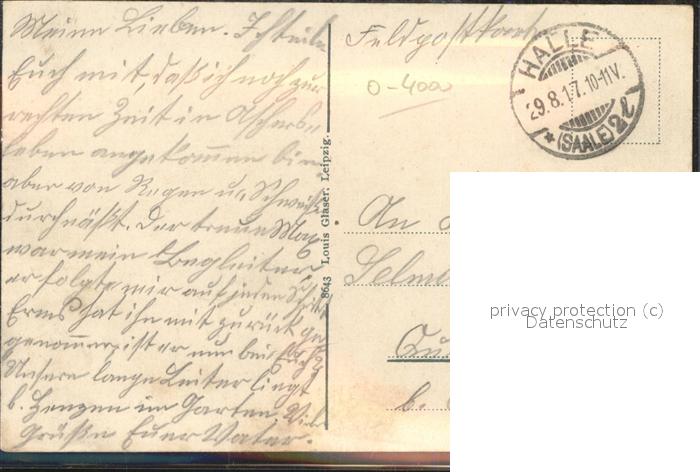 Meine Lieben. Ich teile
Euch mit, daß ich noch zur
rechten Zeit in Aschers-
leben angekommen bin
aber von Regen u. Schweiß
durchnäßt. Der treue Max
war mein Begleiter,
er folgte mir auf jeden Schritt
Erms hat ihn mit zurück ge-
genommen, ist er nun bei Euch?
Unsere lange Leiter liegt
b. Henzen im Garten. Viele
Grüße Euer Vater.
8643 Louis Glaser, Leipzig.
Feldpostkarte
0-4000
HALLE
29.8.17. 10-11V.
* (SAALE) 2 l
An
b.
privacy protection (c)
Datenschutz